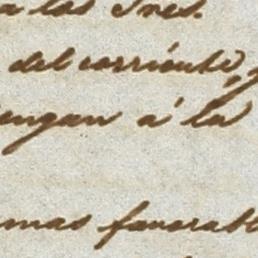 a las Sres.
del corriente, y
engan á la
mas favorabl